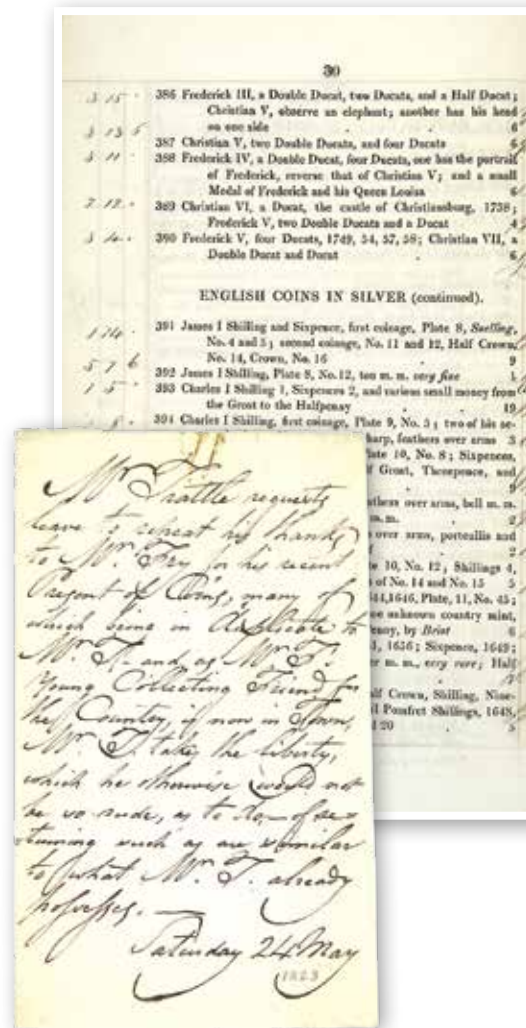 30
3 15 · 386 Frederick III, a Double Ducat, two Ducats, and a Half Ducat;
Christian V, obverse an elephant; another has his head
3 13 6 on one side . . 6
387 Christian V, two Double Ducats, and four Ducats 6
3 11 · 388 Frederick IV, a Double Ducat, four Ducats, one has the portrait
of Frederick, reverse that of Christian V; and a small
Medal of Frederick and his Queen Louisa 6
2 12 · 389 Christian VI, a Ducat, the castle of Christiansburg, 1738;
Frederick V, two Double Ducats and a Ducat 4
3 4 · 390 Frederick V, four Ducats, 1749, 54, 57, 58; Christian VII, a
Double Ducat and Ducat . 6
ENGLISH COINS IN SILVER (continued).
1 14 · 391 James I Shilling and Sixpence, first coinage, Plate 8, Snelling,
No. 4 and 5; second coinage, No. 11 and 12, Half Crown,
No. 14, Crown, No. 16 9
5 7 6 392 James I Shilling, Plate 8, No. 12, ton m. m. very fine 1
1 5 · 393 Charles I Shilling 1, Sixpences 2, and various small money from
the Groat to the Halfpenny 19
394 Charles I Shilling, first coinage, Plate 9, No. 5; two of his se-
harp, feathers over arms 3
late 10, No. 8; Sixpences,
f Groat, Threepence, and
9
athers over arms, bell m. m.
m. m. . 2
over arms, portcullis and
2
te 10, No. 12; Shillings 4,
s of No. 14 and No. 15 5
644, 1646, Plate, 11, No. 45;
ne unknown country mint,
enny, by Briot 6
1, 1656; Sixpence, 1649;
er m. m., very rare; Half
alf Crown, Shilling, Nine-
il Pomfret Shillings, 1648,
d 20 . 5
Mr. Trattle requests
leave to repeat his thanks
to Mr. Fry for his recent
Present of Coins, many of
which being in Duplicate to
Mr. T. and as Mr. T.'s
Young Collecting Friend for
the Country, is now in Town,
Mr. T. takes the liberty,
which he otherwise would not
be so rude, as to do—of re-
turning such as are similar
to what Mr. T. already
possesses.—
Saturday 24 May
1823